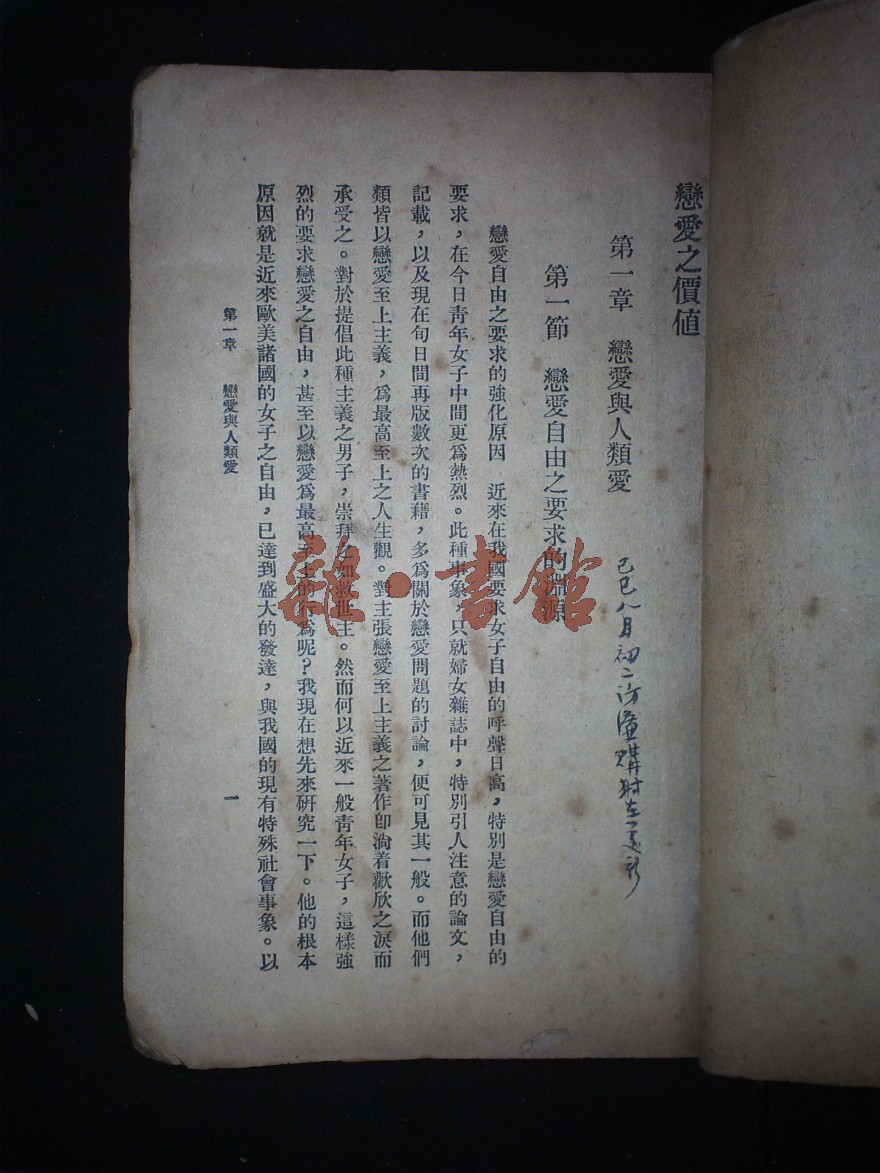 戀愛之價値
第一章　戀愛與人類愛
己巳八月初二訪滬購
第一節　戀愛自由之要求的淵源
戀愛自由之要求的強化原因　近來在我國要求女子自由的呼聲日高，特別是戀愛自由的
要求，在今日靑年女子中間更爲熱烈。此種事象，只就婦女雜誌中，特別引人注意的論文，
記載，以及現在旬日間再版數次的書藉，多爲關於戀愛問題的討論，便可見其一般。而他們
類皆以戀愛至上主義，爲最高至上之人生觀。對主張戀愛至上主義之著作卽淌着歡欣之淚而
承受之。對於提倡此種主義之男子，崇拜之如救世主。然而何以近來一般靑年女子，這樣強
烈的要求戀愛之自由，甚至以戀愛爲最高至上的行爲呢？我現在想先來硏究一下。他的根本
原因就是近來歐美諸國的女子之自由，已達到盛大的發達，與我國的現有特殊社會事象。以
第一章　戀愛與人類愛
一
雜·書館